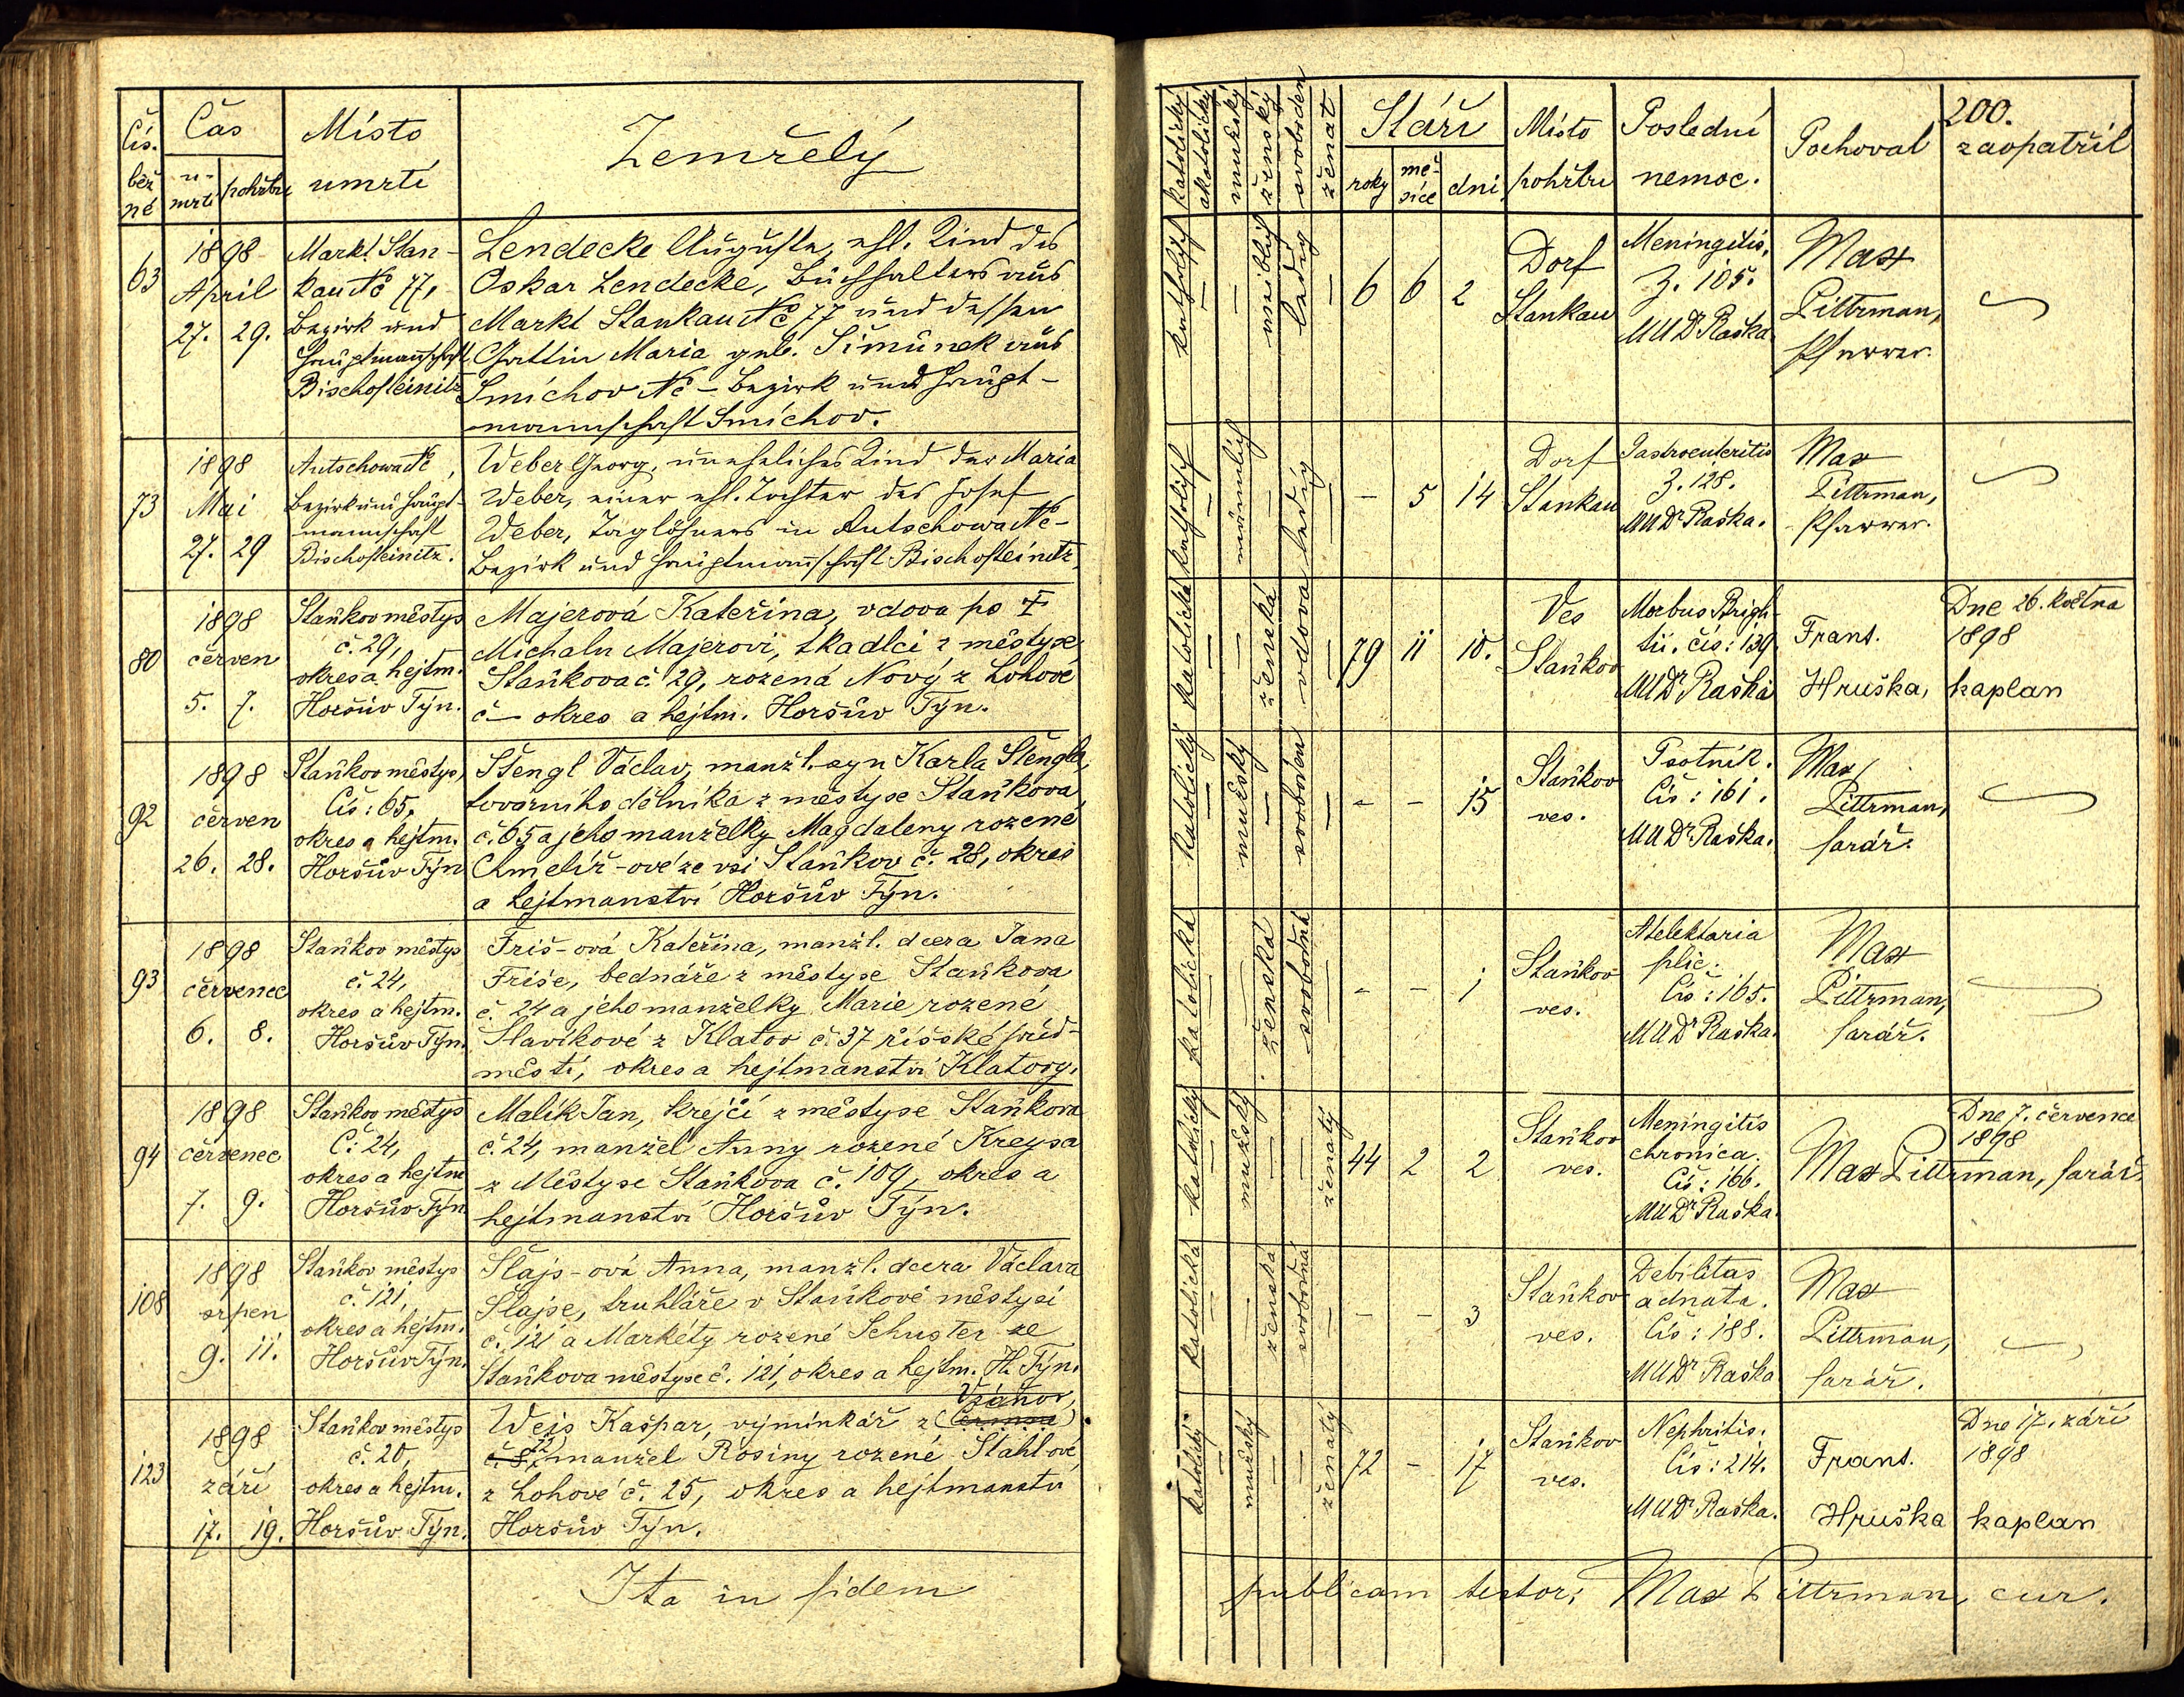 Čís.
běž
né
Čas
u-
mrtí
pohřbu
Místo
umrtí
Zemřelý
63
1898
April
27. 29.
Markt Stan-
kau № 77,
Bezirk und
Hauptmannschaft
Bischofteinitz
Lendecke Auguste, ehl. Kind des
Oskar Lendecke, Buchhalters aus
Markt Stankau № 77 und dessen
Gattin Maria geb. Šimůnek aus
Smíchov № – Bezirk und Haupt-
mannschaft Smíchov.
73
1898
Mai
27. 29
Autschowa №,
Bezirk und Haupt-
mannschaft
Bischofteinitz.
Weber Georg, uneheliches Kind der Maria
Weber, einer ehl. Tochter des Josef
Weber, Taglöhners in Autschowa № –
Bezirk und Hauptmannschaft Bischofteinitz
80
1898
červen
5. 7.
Staňkov městys
č. 29,
okres a hejtm.
Horšův Týn.
Majerová Kateřina, vdova po †
Michalu Majerovi, tkadlci z městyse
Staňkova č. 29, rozená Nový z Lohové
č – okres a hejtm. Horšův Týn.
92
1898
červen
26. 28.
Staňkov městys,
Čís: 65,
okres a hejtm.
Horšův Týn
Štengl Václav, manžl. syn Karla Štengla,
továrního dělníka z městyse Staňkova
č. 65 a jeho manželky Magdaleny rozené
Chmelíř-ové ze vsi Staňkov č. 28, okres
a hejtmanství Horšův Týn.
93
1898
červenec
6. 8.
Staňkov městys
č. 24,
okres a hejtm.
Horšův Týn.
Friš-ová Kateřina, manžl. dcera Jana
Friše, bednáře z městyse Staňkova
č. 24 a jeho manželky Marie rozené
Slavíkové z Klatov č. 37 říšské před-
městí, okres a hejtmanství Klatovy.
94
1898
červenec
7. 9.
Staňkov městys
Č: 24,
okres a hejtm
Horšův Týn
Malík Jan, krejčí z městyse Staňkova
č. 24, manžel Anny rozené Kreysa
z Městyse Staňkova č. 109, okres a
hejtmanství Horšův Týn.
108
1898
srpen
9. 11.
Staňkov městys
č. 121,
okres a hejtm.
Horšův Týn.
Šlajs-ová Anna, manžl. dcera Václava
Šlajse, truhláře v Staňkově městysi
č. 121 a Markéty rozené Schuster ze
Staňkova městyse č. 121, okres a hejtm. H. Týn.
123
1898
září
17. 19.
Staňkov městys
č. 20,
okres a hejtm.
Horšův Týn.
Vránov,
Weis Kašpar, výminkář z
manžel Rosiny rozené Stahlové
z Lohové č. 25, okres a hejtmanství
Horšův Týn.
Ita in fidem
200.
katolický
akatolický
mužský
ženský
svoboden
ženat
Stáří
roky
mě-
síce
dni
Místo
pohřbu
Poslední
nemoc.
Pochoval
zaopatřil
katholisch
–
–
weiblich
ledig
–
6 6 2
Dorf
Stankau
Meningitis.
Z. 105.
MUDr Raška.
Max
Pittrman,
Pfarrer.
katholisch
–
männlich
–
ledig
–
– 5 14
Dorf
Stankau
Gastroenteritis
Z. 128.
MUDr Raška.
Max
Pittrman,
Pfarrer.
katolická
–
–
ženská
vdova
–
79 11 10.
Ves
Staňkov
Morbus Brigh-
tii. čís: 139.
MUDr Raška
Frant.
Hruška, kaplan
Dne 26. května
1898
katolický
–
mužský
–
svoboden
–
– – 15
Staňkov
ves.
Psotník.
Čís: 161.
MUDr Raška.
Max
Pittrman,
farář.
katolická
–
–
ženská
svobodná
–
– – 1
Staňkov
ves.
Atelektaria
plic.
Čís: 165.
MUDr Raška.
Max
Pittrman,
farář.
katolický
–
mužský
–
–
ženatý
44 2 2
Staňkov
ves.
Meningitis
chronica.
Čís: 166.
MUDr Raška.
Dne 7. července
1898
Max Pittrman, farář.
katolická
–
–
ženská
svobodná
–
– – 3
Staňkov
ves.
Debilitas
adnata.
Čís: 188.
MUDr Raška
Max
Pittrman,
farář.
katolický
–
mužský
–
–
ženatý
72 – 17
Staňkov
ves.
Nephritis.
Čís: 214.
MUDr Raška.
Frant.
Hruška kaplan
Dne 17. září
1898
publicam testor: Max Pittrman, cur.